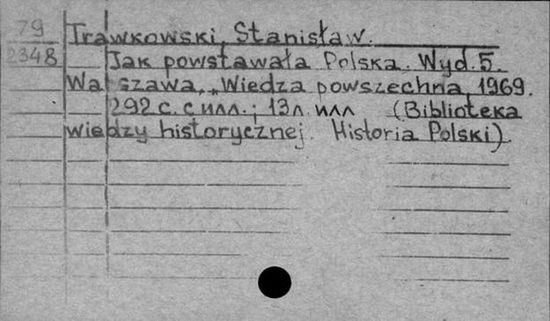 79 Trawkowski, Stanisław.
2348 Jak powstawała Polska. Wyd. 5.
Warszawa, „Wiedza powszechna, 1969.
292 с. с илл.; 13 л. илл (Biblioteka
wiedzy historycznej. Historia Polski)